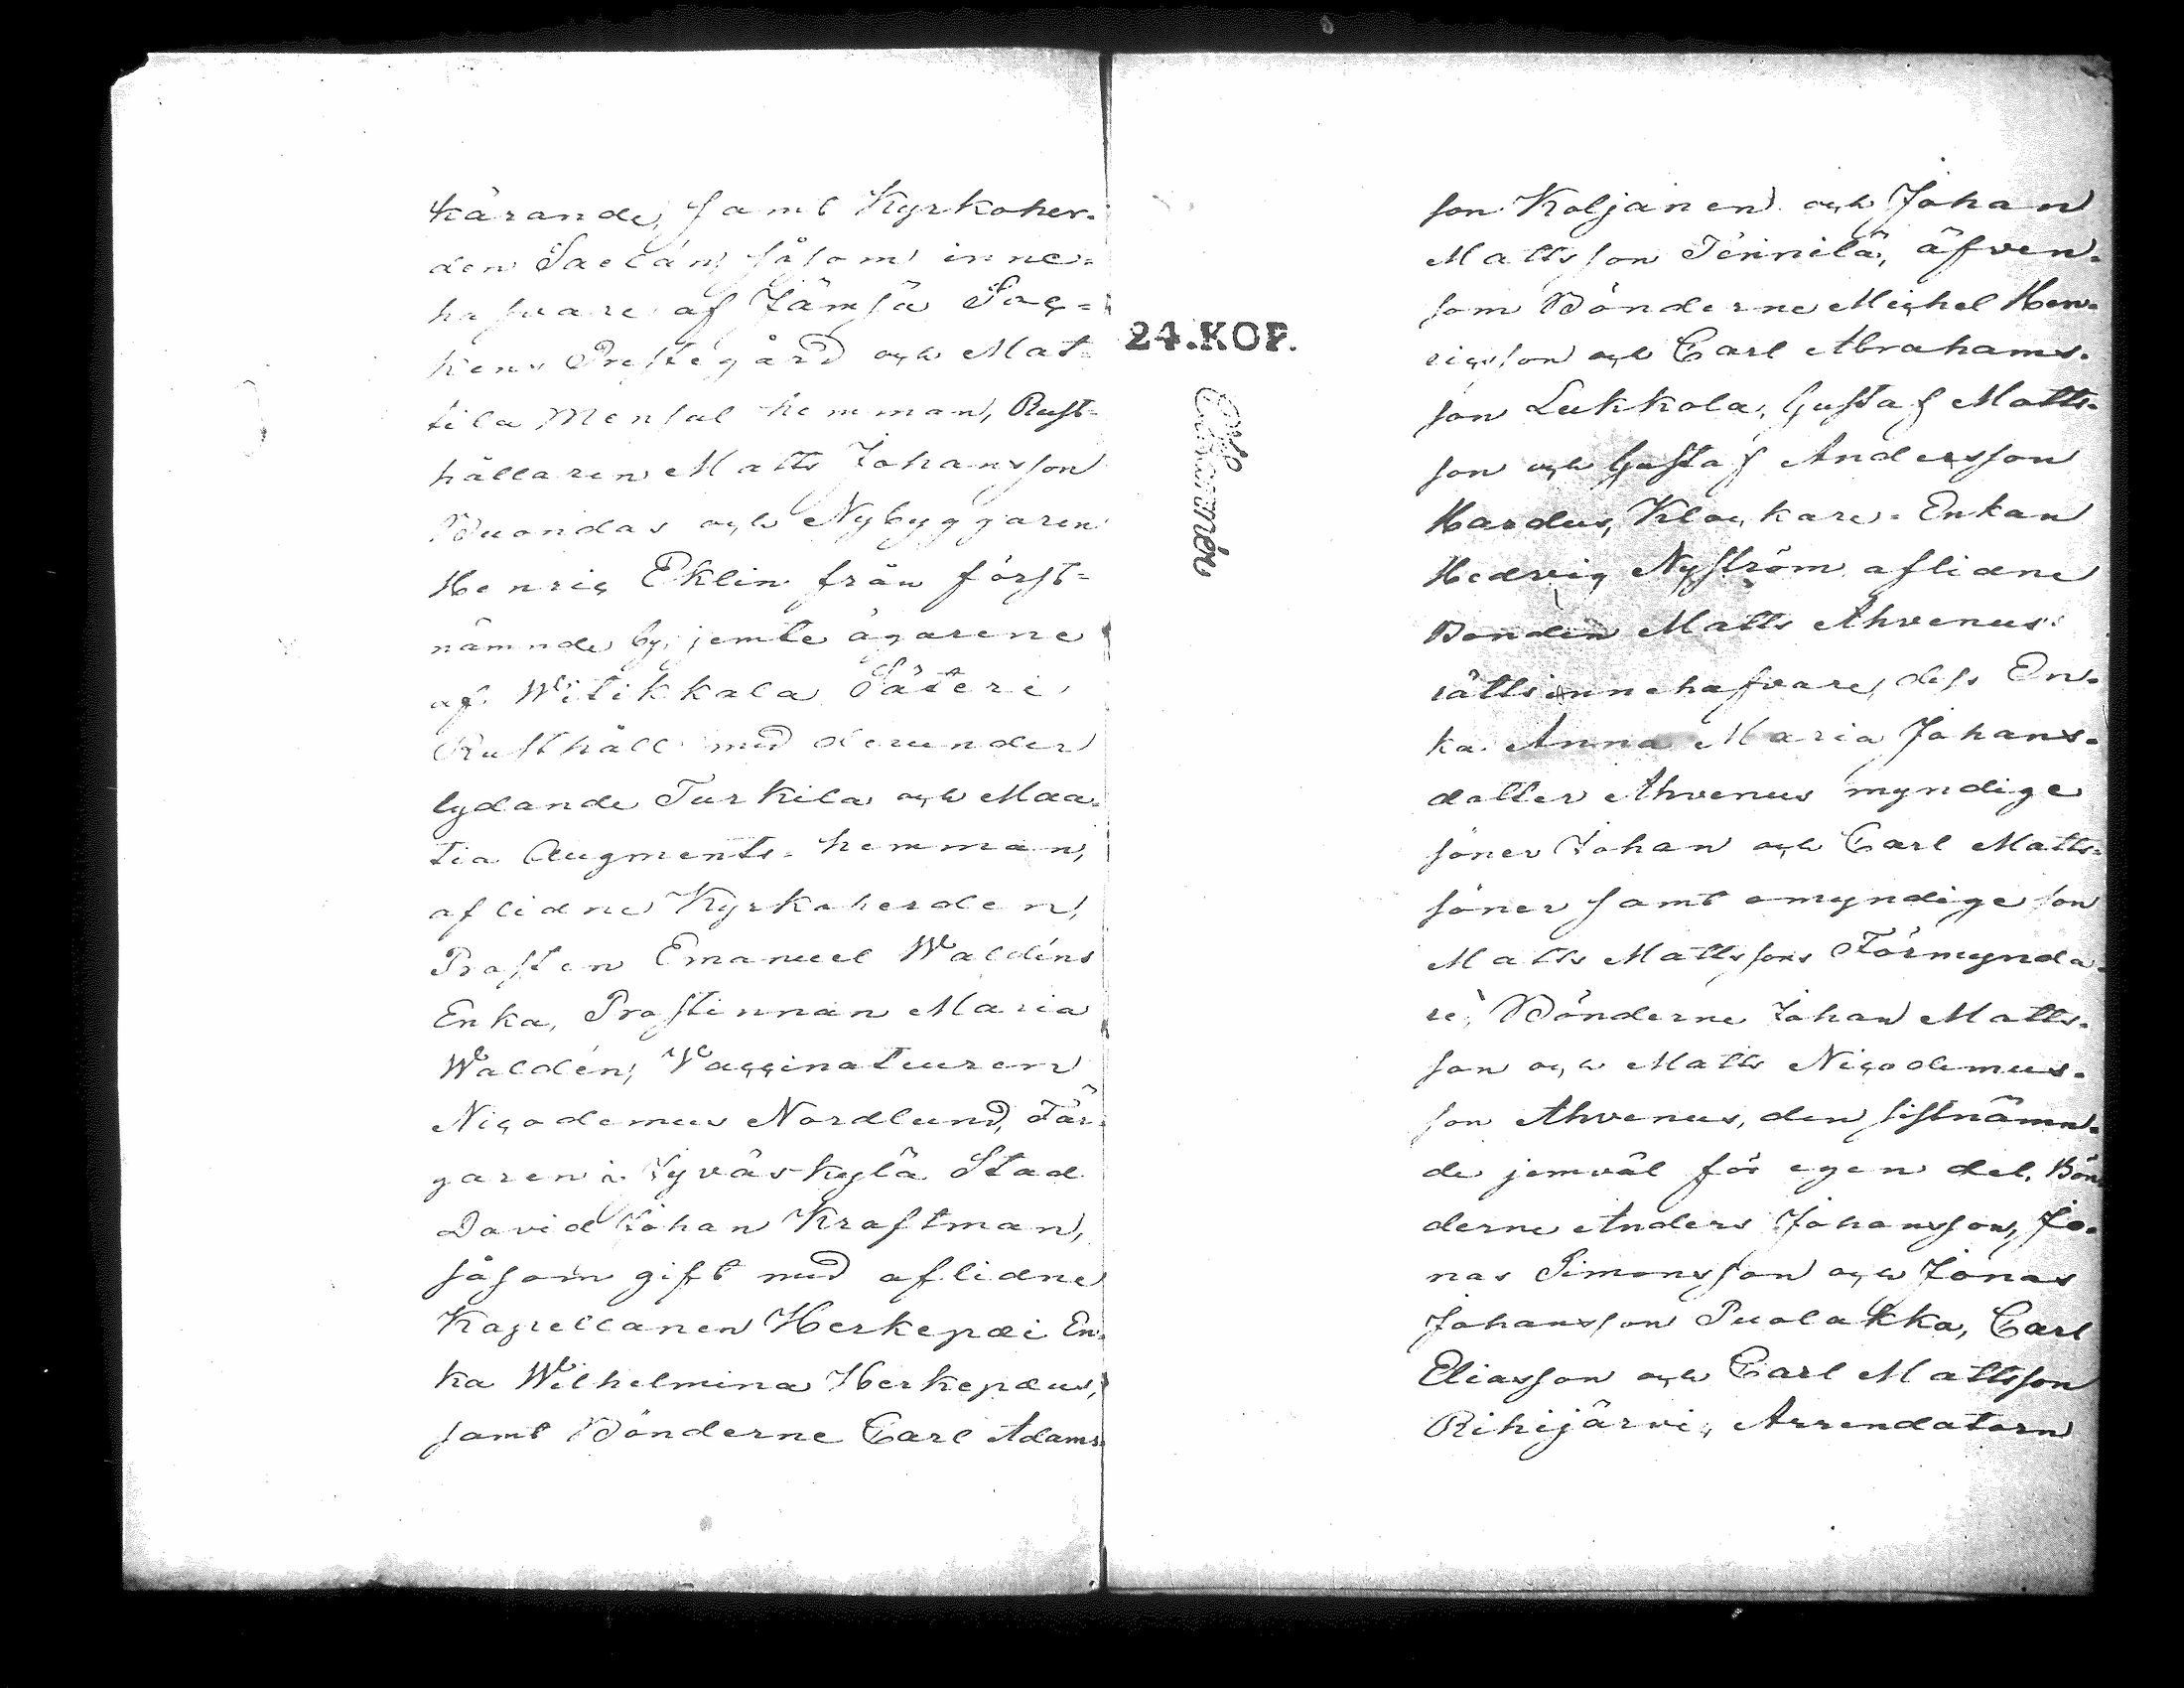 kärande, samt Kyrkoher-
den Saelán, såsom inne-
hafvare af Jämsä Soc-
kens Prestegård och Mat-
tila Mensal hemman, Rust-
hållaren Matts Johansson
Buondas och Nybyggaren
Henric Eklin från först-
nämnde by, jemte ägarene
af Witikkala Säteri
Rusthåll med derunder
lydande Turkila och Maa-
tia Augments-hemman,
aflidne Kyrkoherden,
Prosten Emanuel Waldéns
Enka, Prostinnan Maria
Waldén, Vaccinateuren
Nicodemus Nordlund, Fär-
garen i Jyväskylä Stad
David Johan Kraftman,
såsom gift med aflidne
Kapellanen Herkepæi En-
ka Wilhelmina Herkepæus,
samt Bönderne Carl Adams-
24.KOP.
son Koljanen och Johan
Mattsson Tennilä, äfven-
som Bönderne Michel Hen-
ricsson och Carl Abrahams-
son Lukkola, Gustaf Matts-
son och Gustaf Andersson
Hardus, Klockare-Enkan
Hedvig Nyström aflidne
Bonden Matts Ahvenus'
rättsinnehafvare, dess En-
ka Anna Maria Johans-
dotter Ahvenus myndige
söner Johan och Carl Matts-
söner samt omyndige son
Matts Mattssons Förmynda-
re, Bönderne Johan Matts-
son och Matts Nicodemus-
son Ahvenus, den sistnämn-
de jemväl för egen del, Bön-
derne Anders Johansson, Jo-
nas Simonsson och Jonas
Johansson Puolakka, Carl
Eliasson och Carl Mattsson
Rihijärvi, Arrendatorn